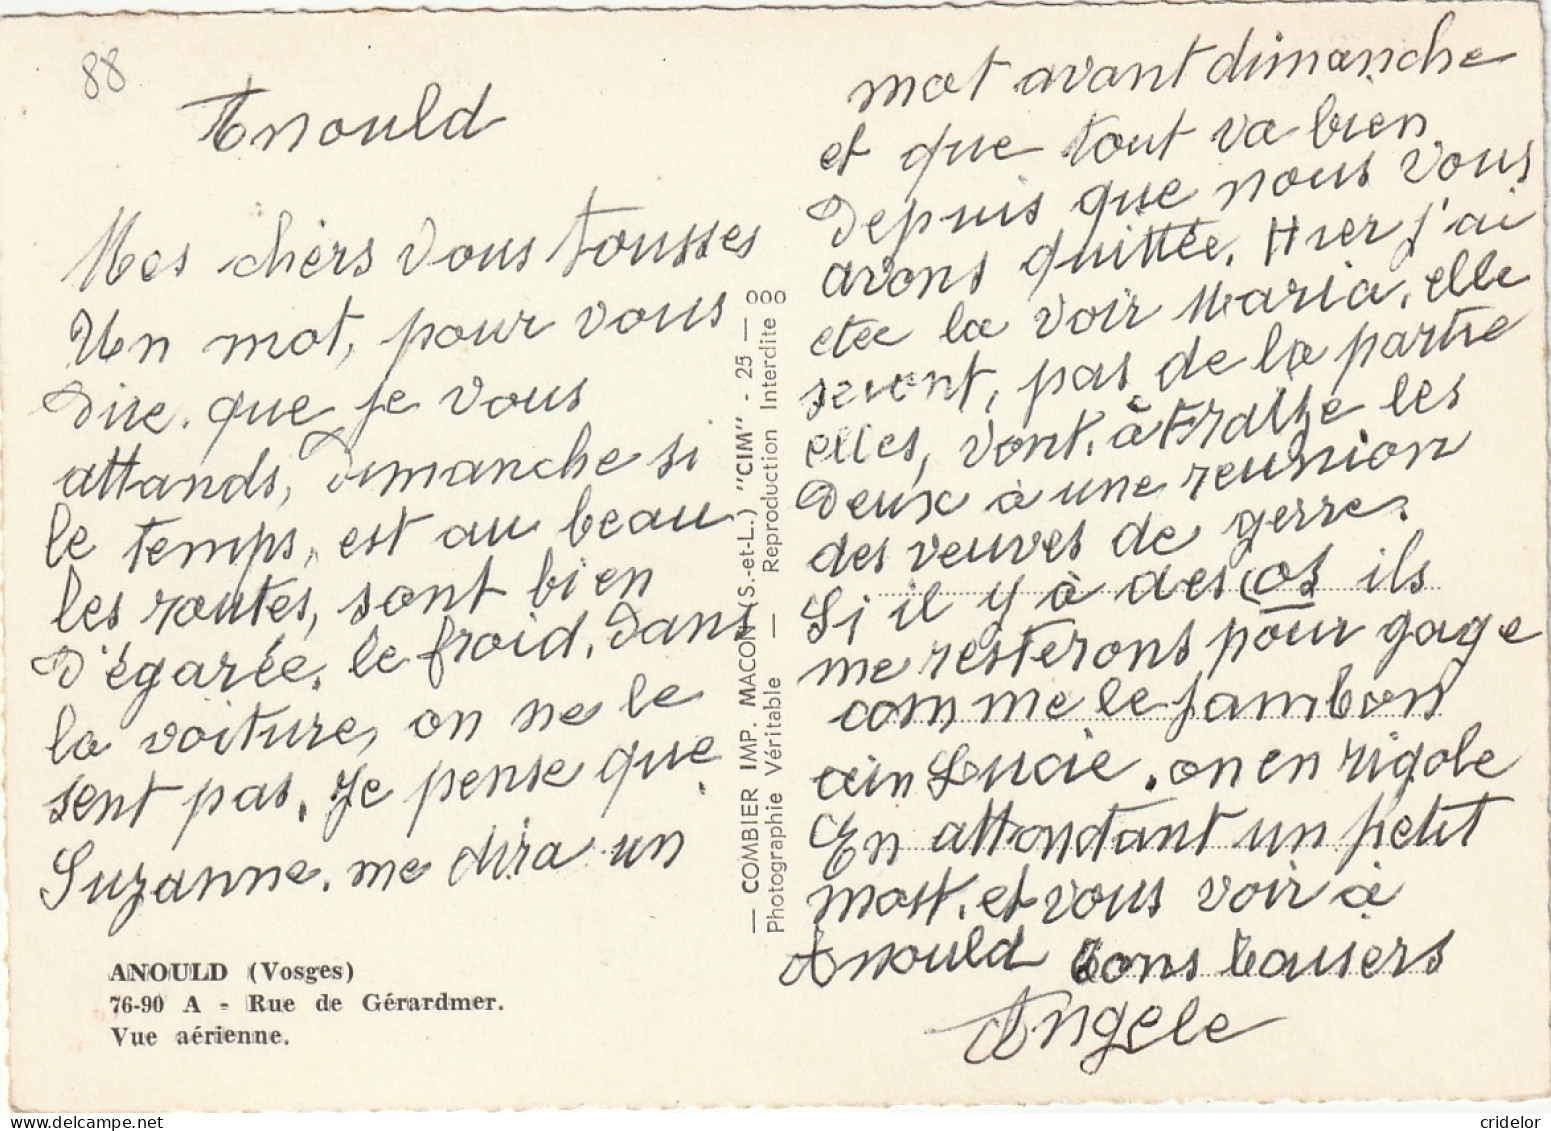 88
Anould
Mes chèrs vous tousses
Un mot, pour vous
Dire. que je vous
attands, Dimanche si
le temps, est au beau
les routes, sont bien
D'égarée. le froid. Dans
la voiture, on ne le
sent pas. Je pense que
Suzanne. me dira un
ANOULD (Vosges)
76-90 A - Rue de Gérardmer.
Vue aérienne.
— COMBIER IMP. MACON (S.-et-L.) "CIM" - 25 —
Photographie Véritable — Reproduction Interdite
mot avant dimanche
et que tout va bien
Depuis que nous vous
avons quittée. Hier j'ai
etée la voir Maria. elle
seront, pas de la partie
elles, vont. à Fraize les
Deux à une reunion
des veuves de gerre.
Si il y à des os ils
me resterons pour gage
comme le jambon
ein Lucie. on en rigole
En attondant un petit
mot. et vous voir à
Anould bons baisers
Angele
cridelor